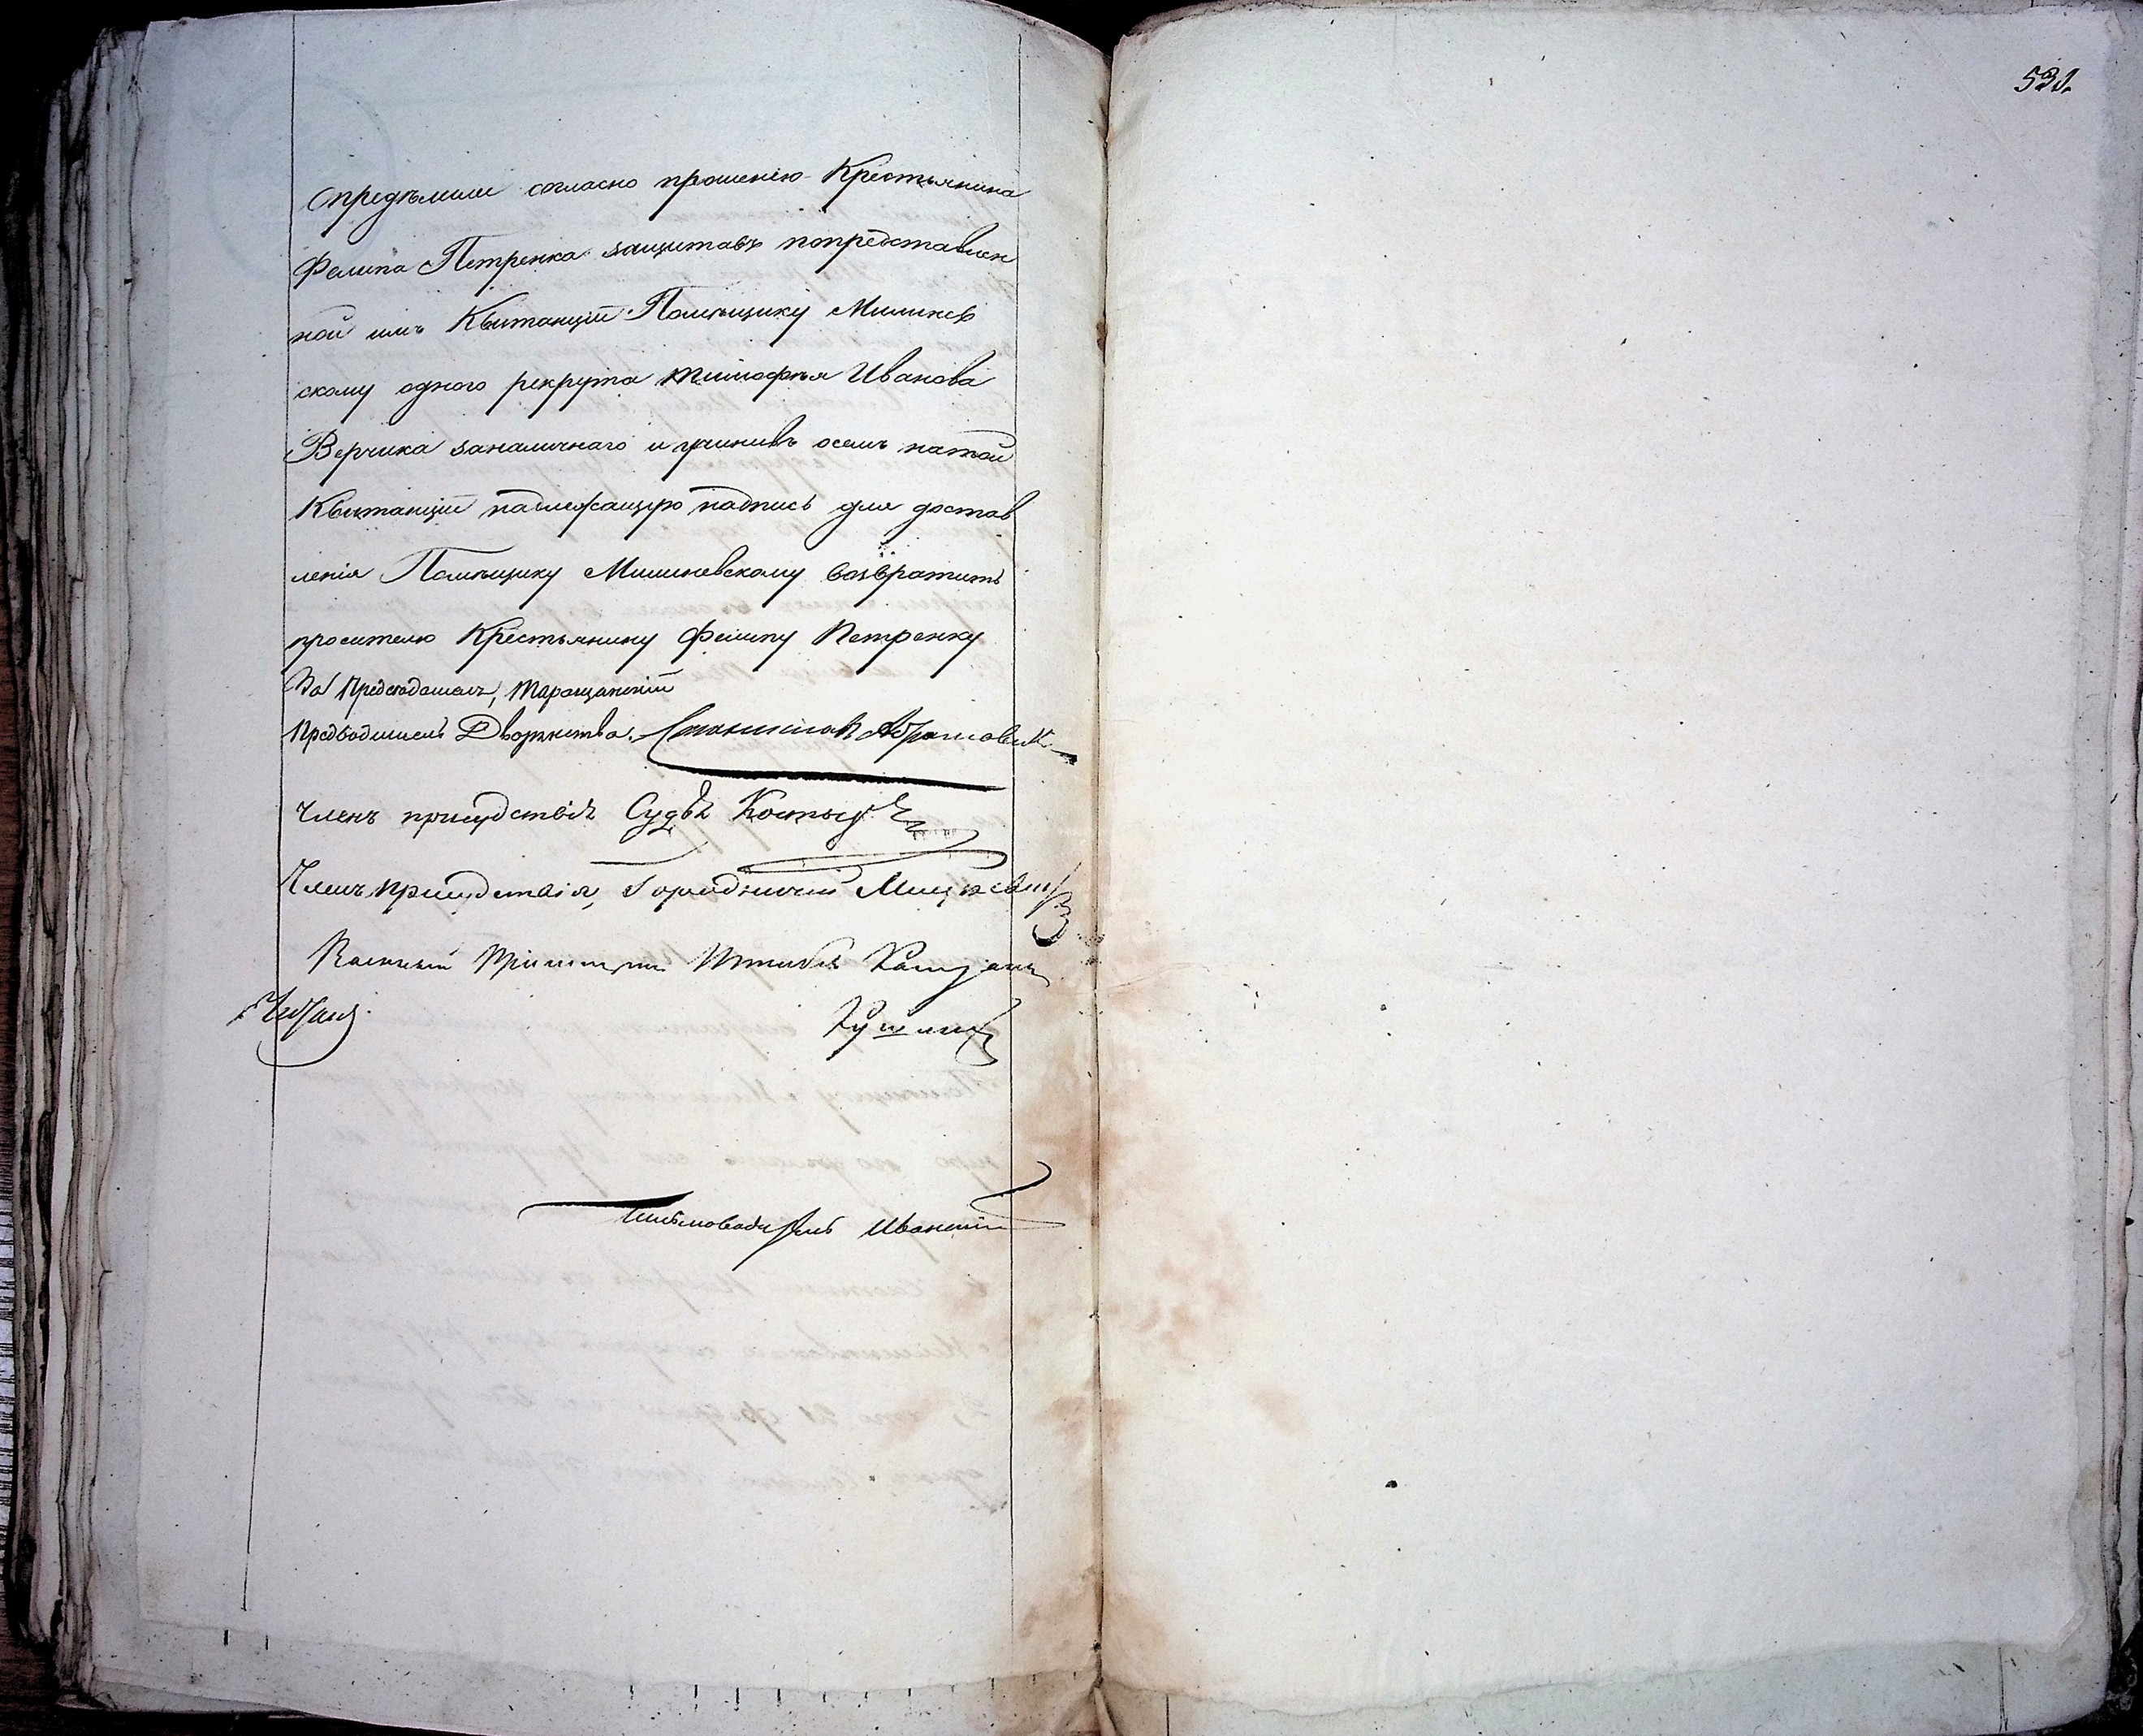 Опредѣлили согласно прошенію Крестьянина
Филипа Петренка защитавъ попредставлен
ной имъ Квитанціи Помѣщику Милинев
скому одного рекрута Тимофѣя Иванова
Верчика заналичнаго и учинивъ осемъ натой
Квитанціи надлежащую надпись для достав
ленія Помѣщику Милиневскому возвратить
просителю Крестьянину Филипу Петренку
За Председателя, Таращанскій
Предводитель Дворянства. Станиславъ Абрамович
Членъ присудствія Судья
Членъ присудствія, Городничій
Военный Штабъ
Письмоводитель
531.